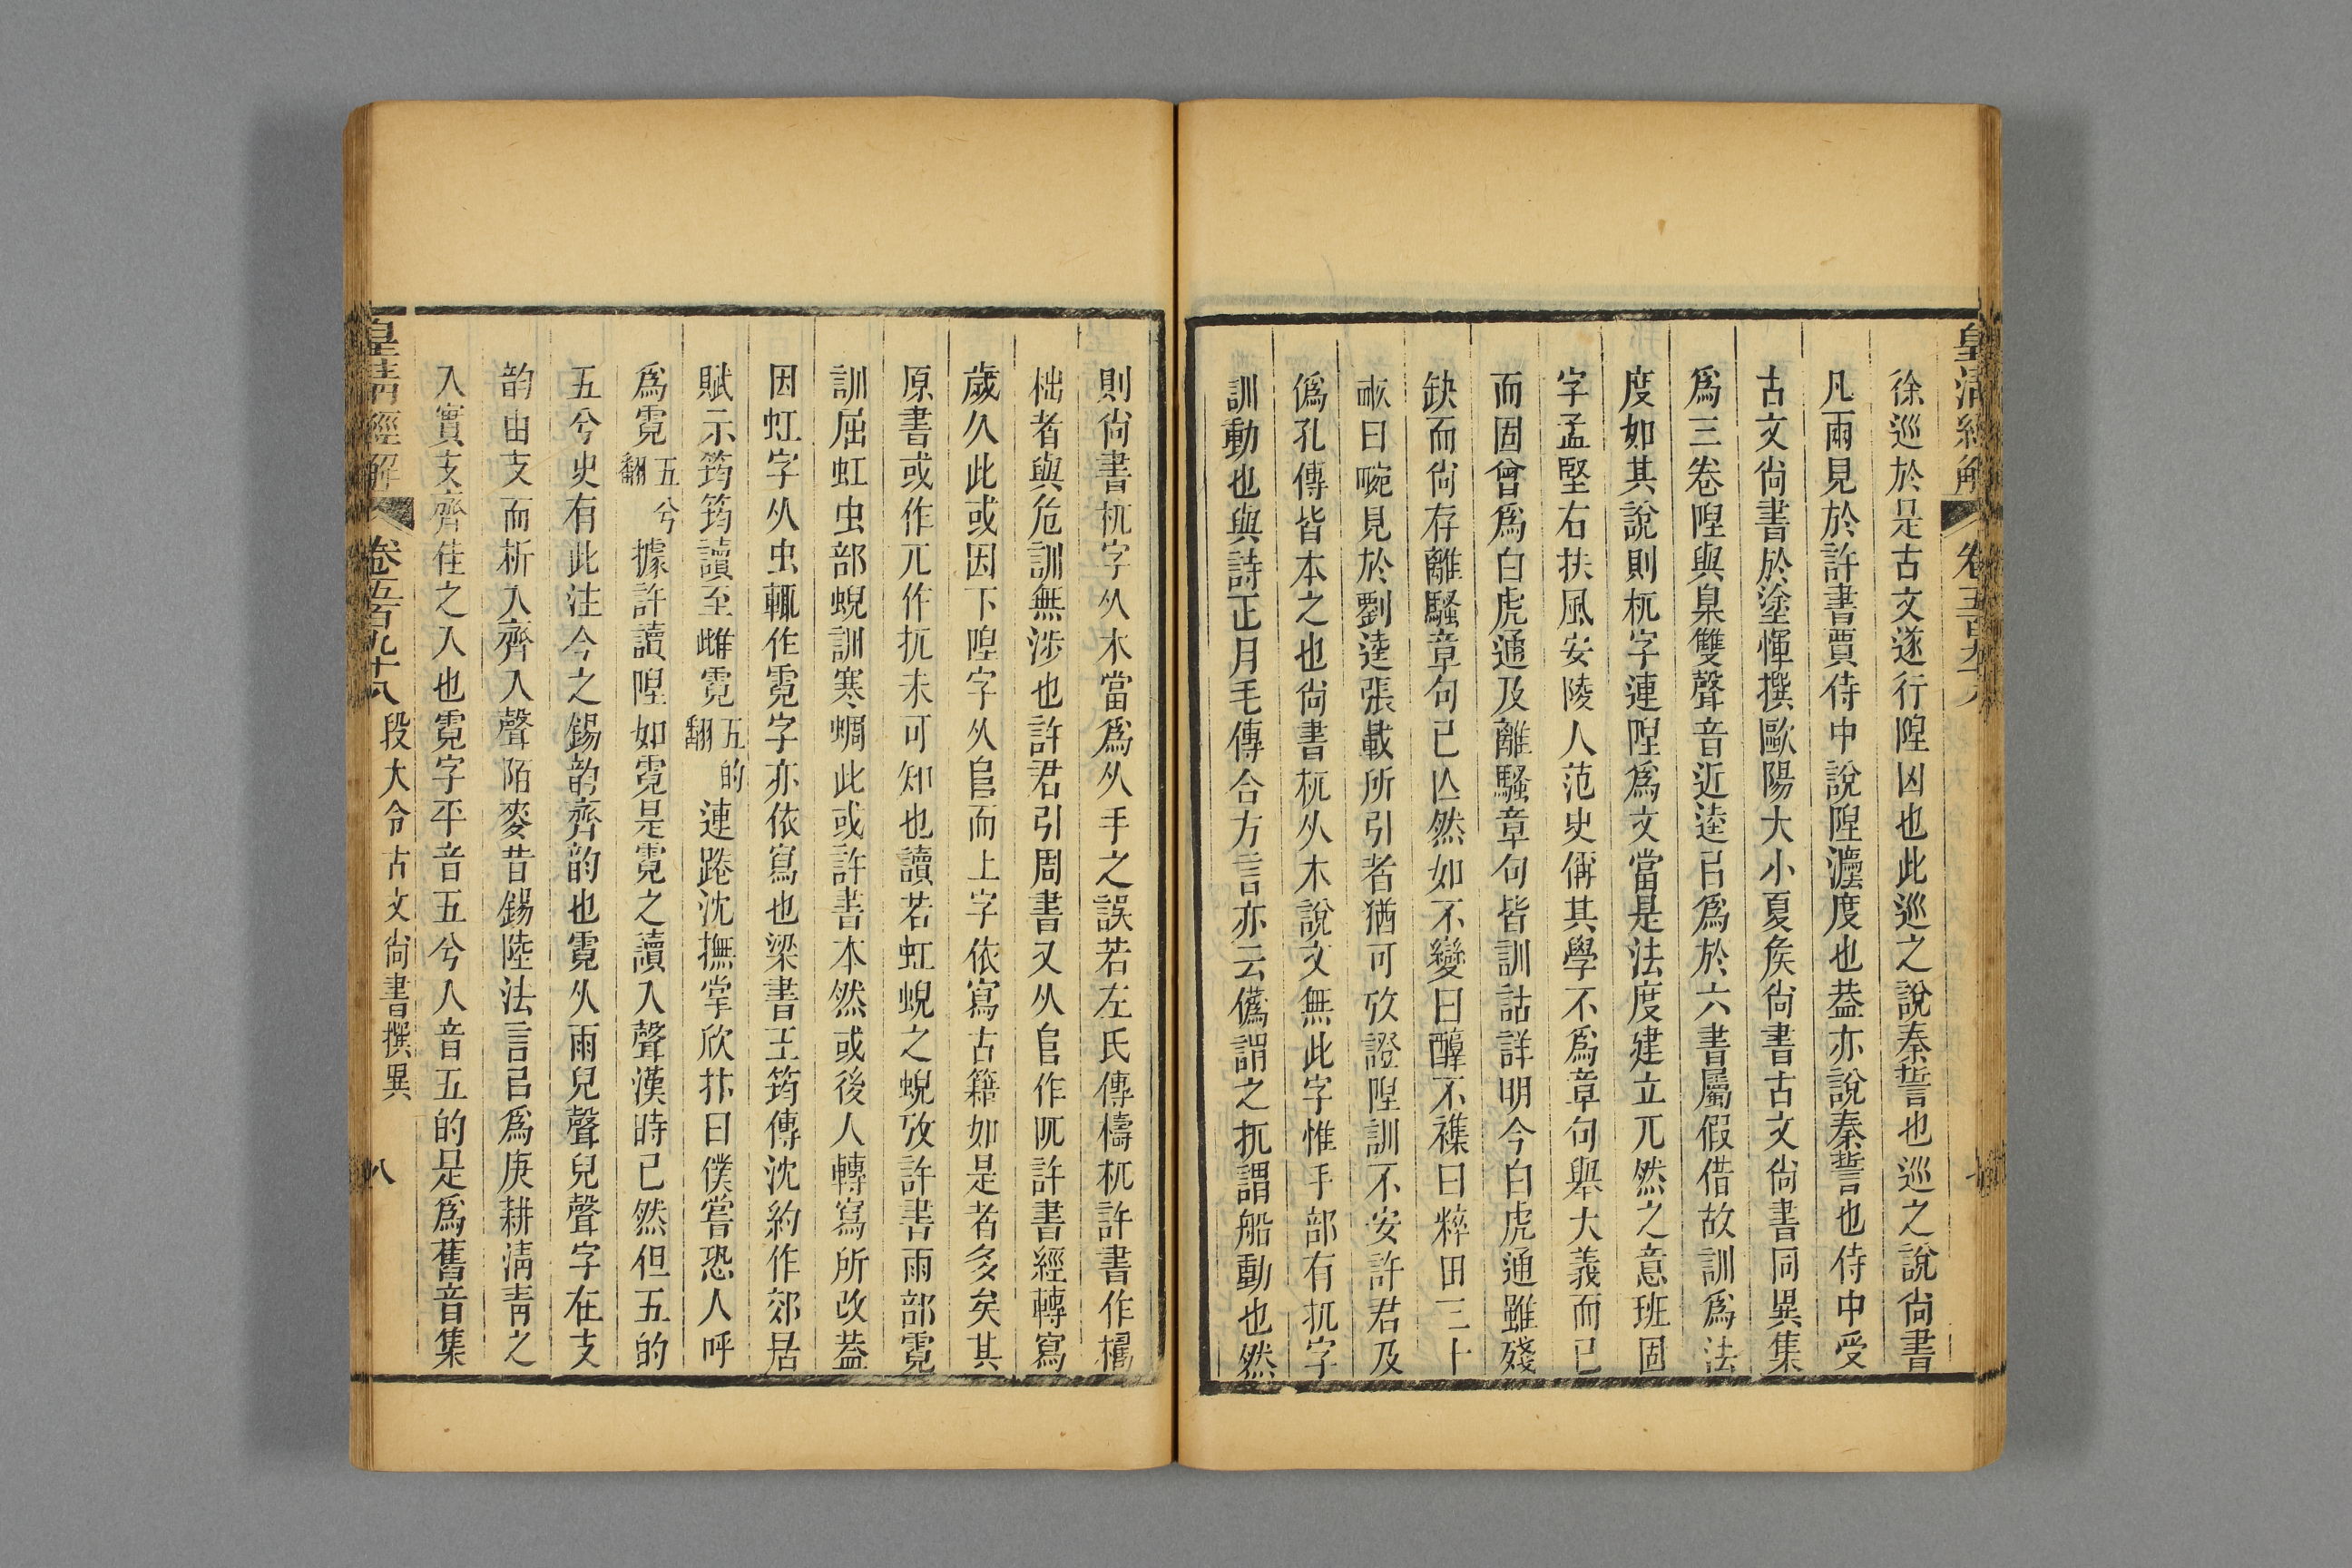 皇清經解
卷五百九十八
徐巡於是古文遂行隉凶也此巡之說秦誓也巡之說尙書
凡兩見於許書賈侍中說隉灋度也葢亦說秦誓也侍中受
古文尙書於塗惲撰歐陽大小夏矦尙書古文尙書同異集
爲三卷隉與臬雙聲音近逵㠯爲於六書屬假借故訓爲法
度如其說則杌字連隉爲文當是法度建立兀然之意班固
字孟堅右扶風安陵人范史偁其學不爲章句舉大義而已
而固曾爲白虎通及離騷章句皆訓詁詳明今白虎通雖殘
缺而尙存離騷章句已亾然如不變曰醇不襍曰粹田三十
畝曰畹見於劉逵張載所引者猶可攷證隉訓不安許君及
僞孔傳皆本之也尙書杌从木說文無此字惟手部有扤字
訓動也與詩正月毛傳合方言亦云僞謂之扤謂船動也然
則尙書杌字从木當爲从手之誤若左氏傳檮杌許書作檮
柮者與危訓無涉也許君引周書又从𨸏作阢許書經轉寫
歲久此或因下隉字从𨸏而上字依寫古籍如是者多矣其
原書或作兀作扤未可知也讀若虹蜺之蜺攷許書雨部霓
訓屈虹虫部蜺訓寒蜩此或許書本然或後人轉寫所改葢
因虹字从虫輒作霓字亦依寫也梁書王筠傳沈約作郊居
賦示筠筠讀至雌霓五的翻連踡沈撫掌欣抃曰僕嘗恐人呼
爲霓五兮翻據許讀隉如霓是霓之讀入聲漢時已然但五的
五兮史有此注今之錫韵齊韵也霓从雨兒聲兒聲字在支
韵由支而析入齊入聲陌麥昔錫陸法言㠯爲庚耕淸靑之
入實支齊佳之入也霓字平音五兮入音五的是爲舊音集
皇淸經解
卷五百九十八
段大令古文尙書撰異
八